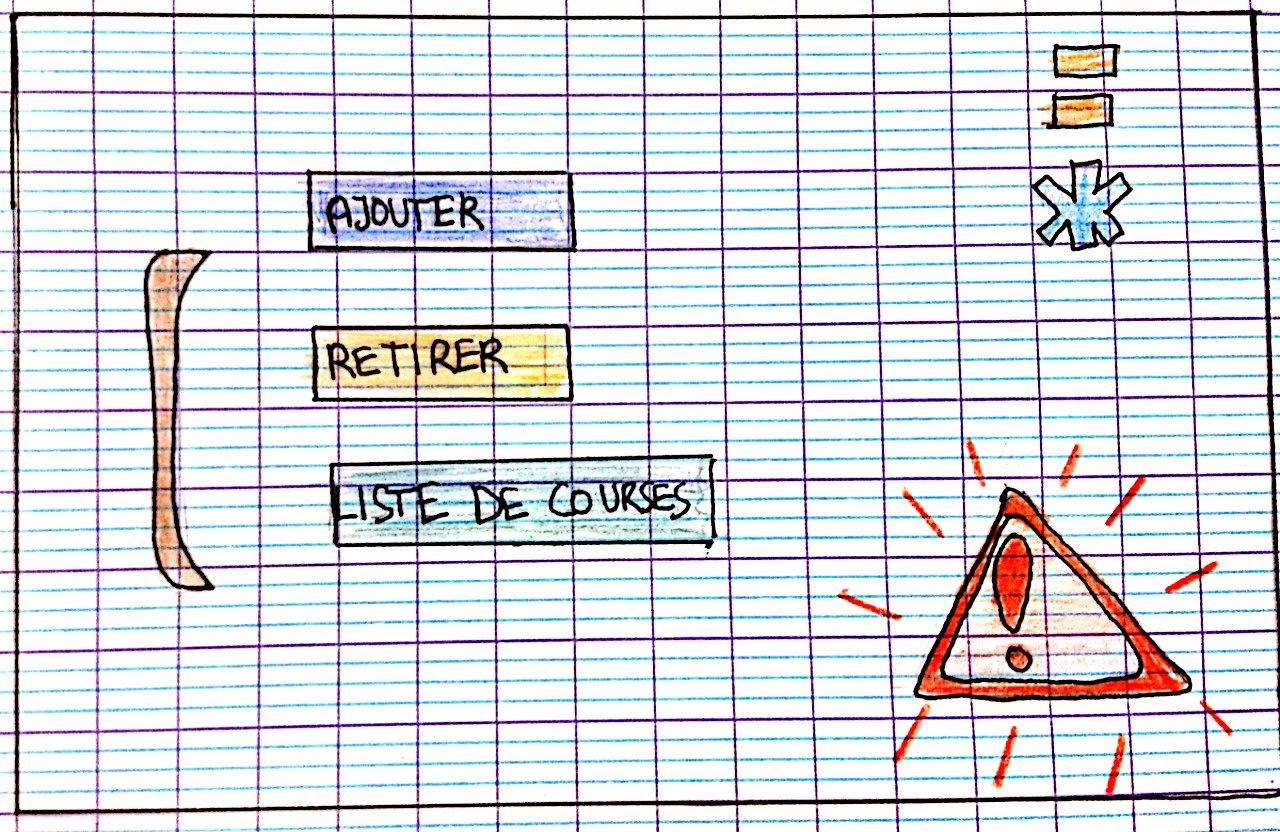 AJOUTER
RETIRER
LISTE DE COURSES